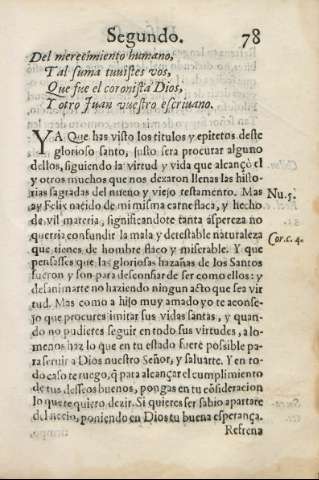 Segundo. 78
Del merecimiento humano,
Tal suma tuuistes vos,
Que fue el coronista Dios,
Y otro Juan vuestro escriuano.
YA Que has visto los titulos y epitetos deste
glorioso santo, justo sera procurar alguno
dellos, siguiendo la virtud y vida que alcançò el
y otros muchos que nos dexaron llenas las histo
rias sagradas del nueuo y viejo testamento. Mas
ay Felix nacido de mi misma carne flaca, y hecho
Nu. 5.
de vil materia, significandote tanta aspereza no
querria confundir la mala y detestable naturaleza
Cor. c. 4.
que tienes de hombre flaco y miserable. Y que
pensasses que las gloriosas hazañas de los Santos
fueron y son para desconfiar de ser como ellos: y
desanimarte no haziendo ningun acto que sea vir
tud. Mas como a hijo muy amado yo te aconse-
jo que procures imitar sus vidas santas, y quan-
do no pudieres seguir en todo sus virtudes, a lo-
menos haz lo que en tu estado fuere possible pa-
ra seruir a Dios nuestro Señor, y saluarte. Y en to-
do caso te ruego, q̃ para alcançar el cumplimiento
de tus desseos buenos, pongas en tu cõsideracion
lo que te quiero dezir. Si quieres ser sabio apartate
del necio, poniendo en Dios tu buena esperança.
Refrena